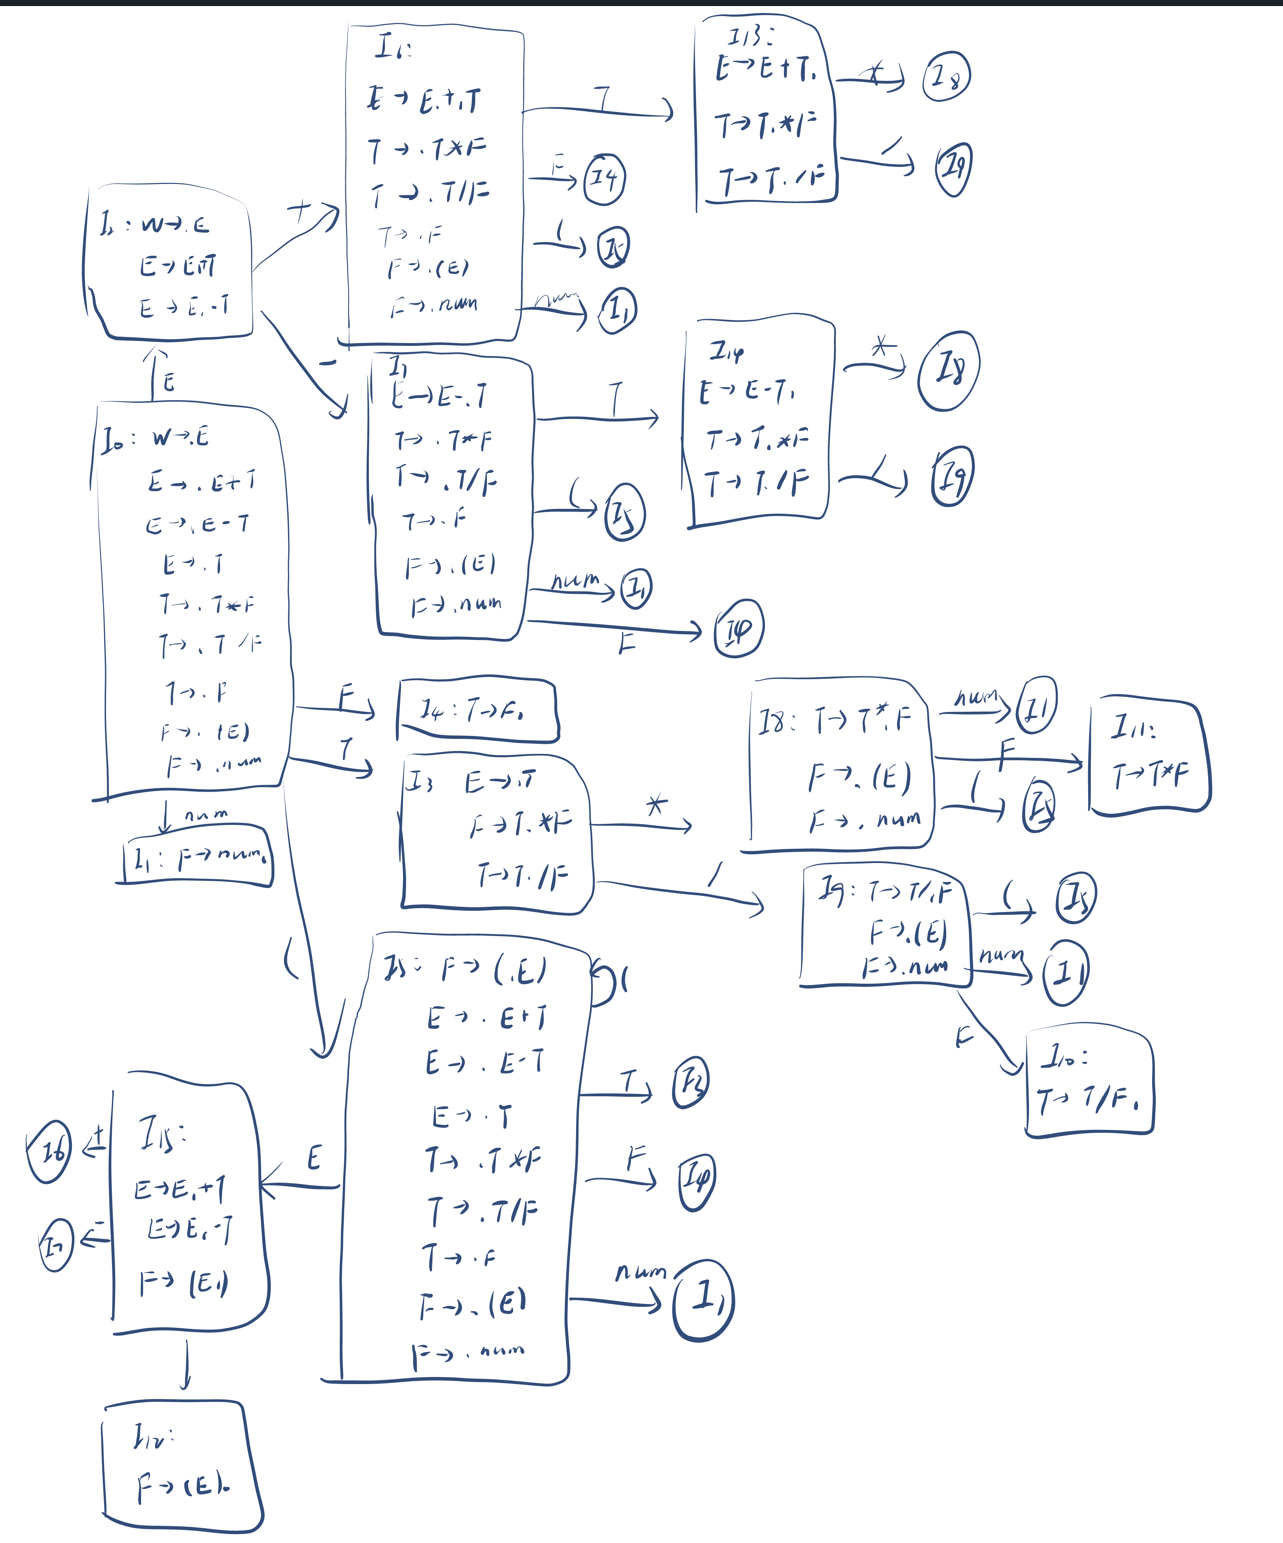 I6:
E → E.+.T
T → .T*F
T → .T/F
T → .F
F → .(E)
F → .num
T
F
I4
(
I5
num
I1
I13:
E → E+T.
T → T.*F
T → T./F
*
I8
/
I9
I2: W → .E
E → E+T
E → E.-T
+
-
E
I7
E → E-.T
T → .T*F
T → .T/F
T → .F
F → .(E)
F → .num
T
(
I5
num
I1
F
I4
I14
E → E-T.
T → T.*F
T → T./F
*
I8
/
I9
I0: W → .E
E → .E+T
E → .E-T
E → .T
T → .T*F
T → .T/F
T → .F
F → .(E)
F → .num
F
T
num
(
I4: T → F.
I1: F → num.
I3 E → .T
F → T.*F
T → T./F
*
/
I8: T → T*.F
F → .(E)
F → .num
num
I1
F
(
I5
I11:
T → T*F
I9: T → T/.F
F → .(E)
F → .num
(
I5
num
I1
F
I10:
T → T/F.
I5: F → (.E)
E → .E+T
E → .E-T
E → .T
T → .T*F
T → .T/F
T → .F
F → .(E)
F → .num
(
T
I3
F
I4
num
I1
E
I15:
E → E.+T
E → E.-T
F → (E.)
+
I6
-
I7
I12:
F → (E).